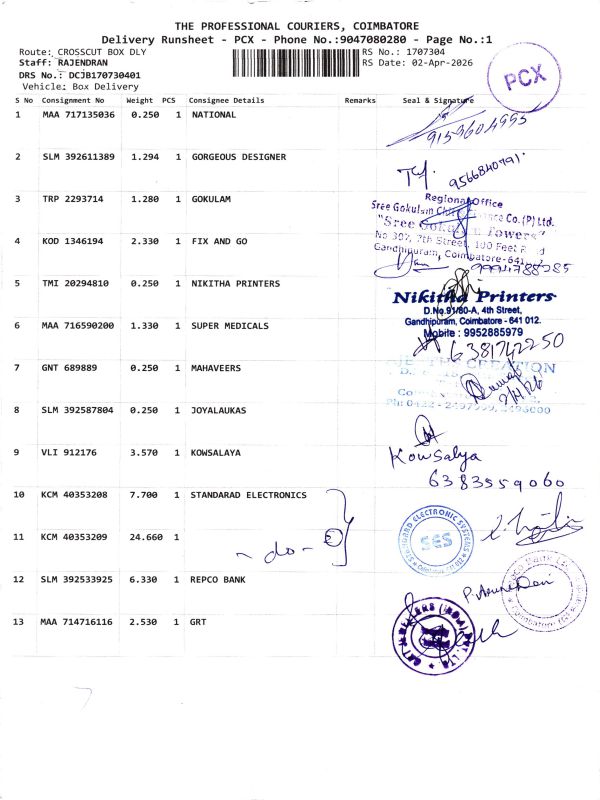 THE PROFESSIONAL COURIERS, COIMBATORE
Delivery Runsheet - PCX - Phone No.:9047080280 - Page No.:1
Route: CROSSCUT BOX DLY
RS No.: 1707304
Staff: RAJENDRAN
RS Date: 02-Apr-2026
DRS No.: DCJB170730401
Vehicle: Box Delivery
PCX
S No Consignment No Weight PCS Consignee Details Remarks Seal & Signature
1 MAA 717135036 0.250 1 NATIONAL
9159604995
2 SLM 392611389 1.294 1 GORGEOUS DESIGNER
9566840791
3 TRP 2293714 1.280 1 GOKULAM
Regional Office
Sree Gokulam Chit Finance Co.(P) Ltd.
"Sree Gokulam Towers"
No 307, 7th Street, 100 Feet Road
Gandhipuram, Coimbatore-641
4 KOD 1346194 2.330 1 FIX AND GO
9994788285
5 TMI 20294810 0.250 1 NIKITHA PRINTERS
Nikitha Printers
D.No.91/80-A, 4th Street,
Gandhipuram, Coimbatore - 641 012.
Mobile : 9952885979
6 MAA 716590200 1.330 1 SUPER MEDICALS
6381742250
7 GNT 689889 0.250 1 MAHAVEERS
CREATION
2/4/26
8 SLM 392587804 0.250 1 JOYALAUKAS
9 VLI 912176 3.570 1 KOWSALAYA
Kowsalya
6383559060
10 KCM 40353208 7.700 1 STANDARAD ELECTRONICS
STANDARD ELECTRONIC SYSTEMS
SES
11 KCM 40353209 24.660 1
- do - 2
12 SLM 392533925 6.330 1 REPCO BANK
13 MAA 714716116 2.530 1 GRT
GRT JEWELLERS (INDIA) PVT. LTD.